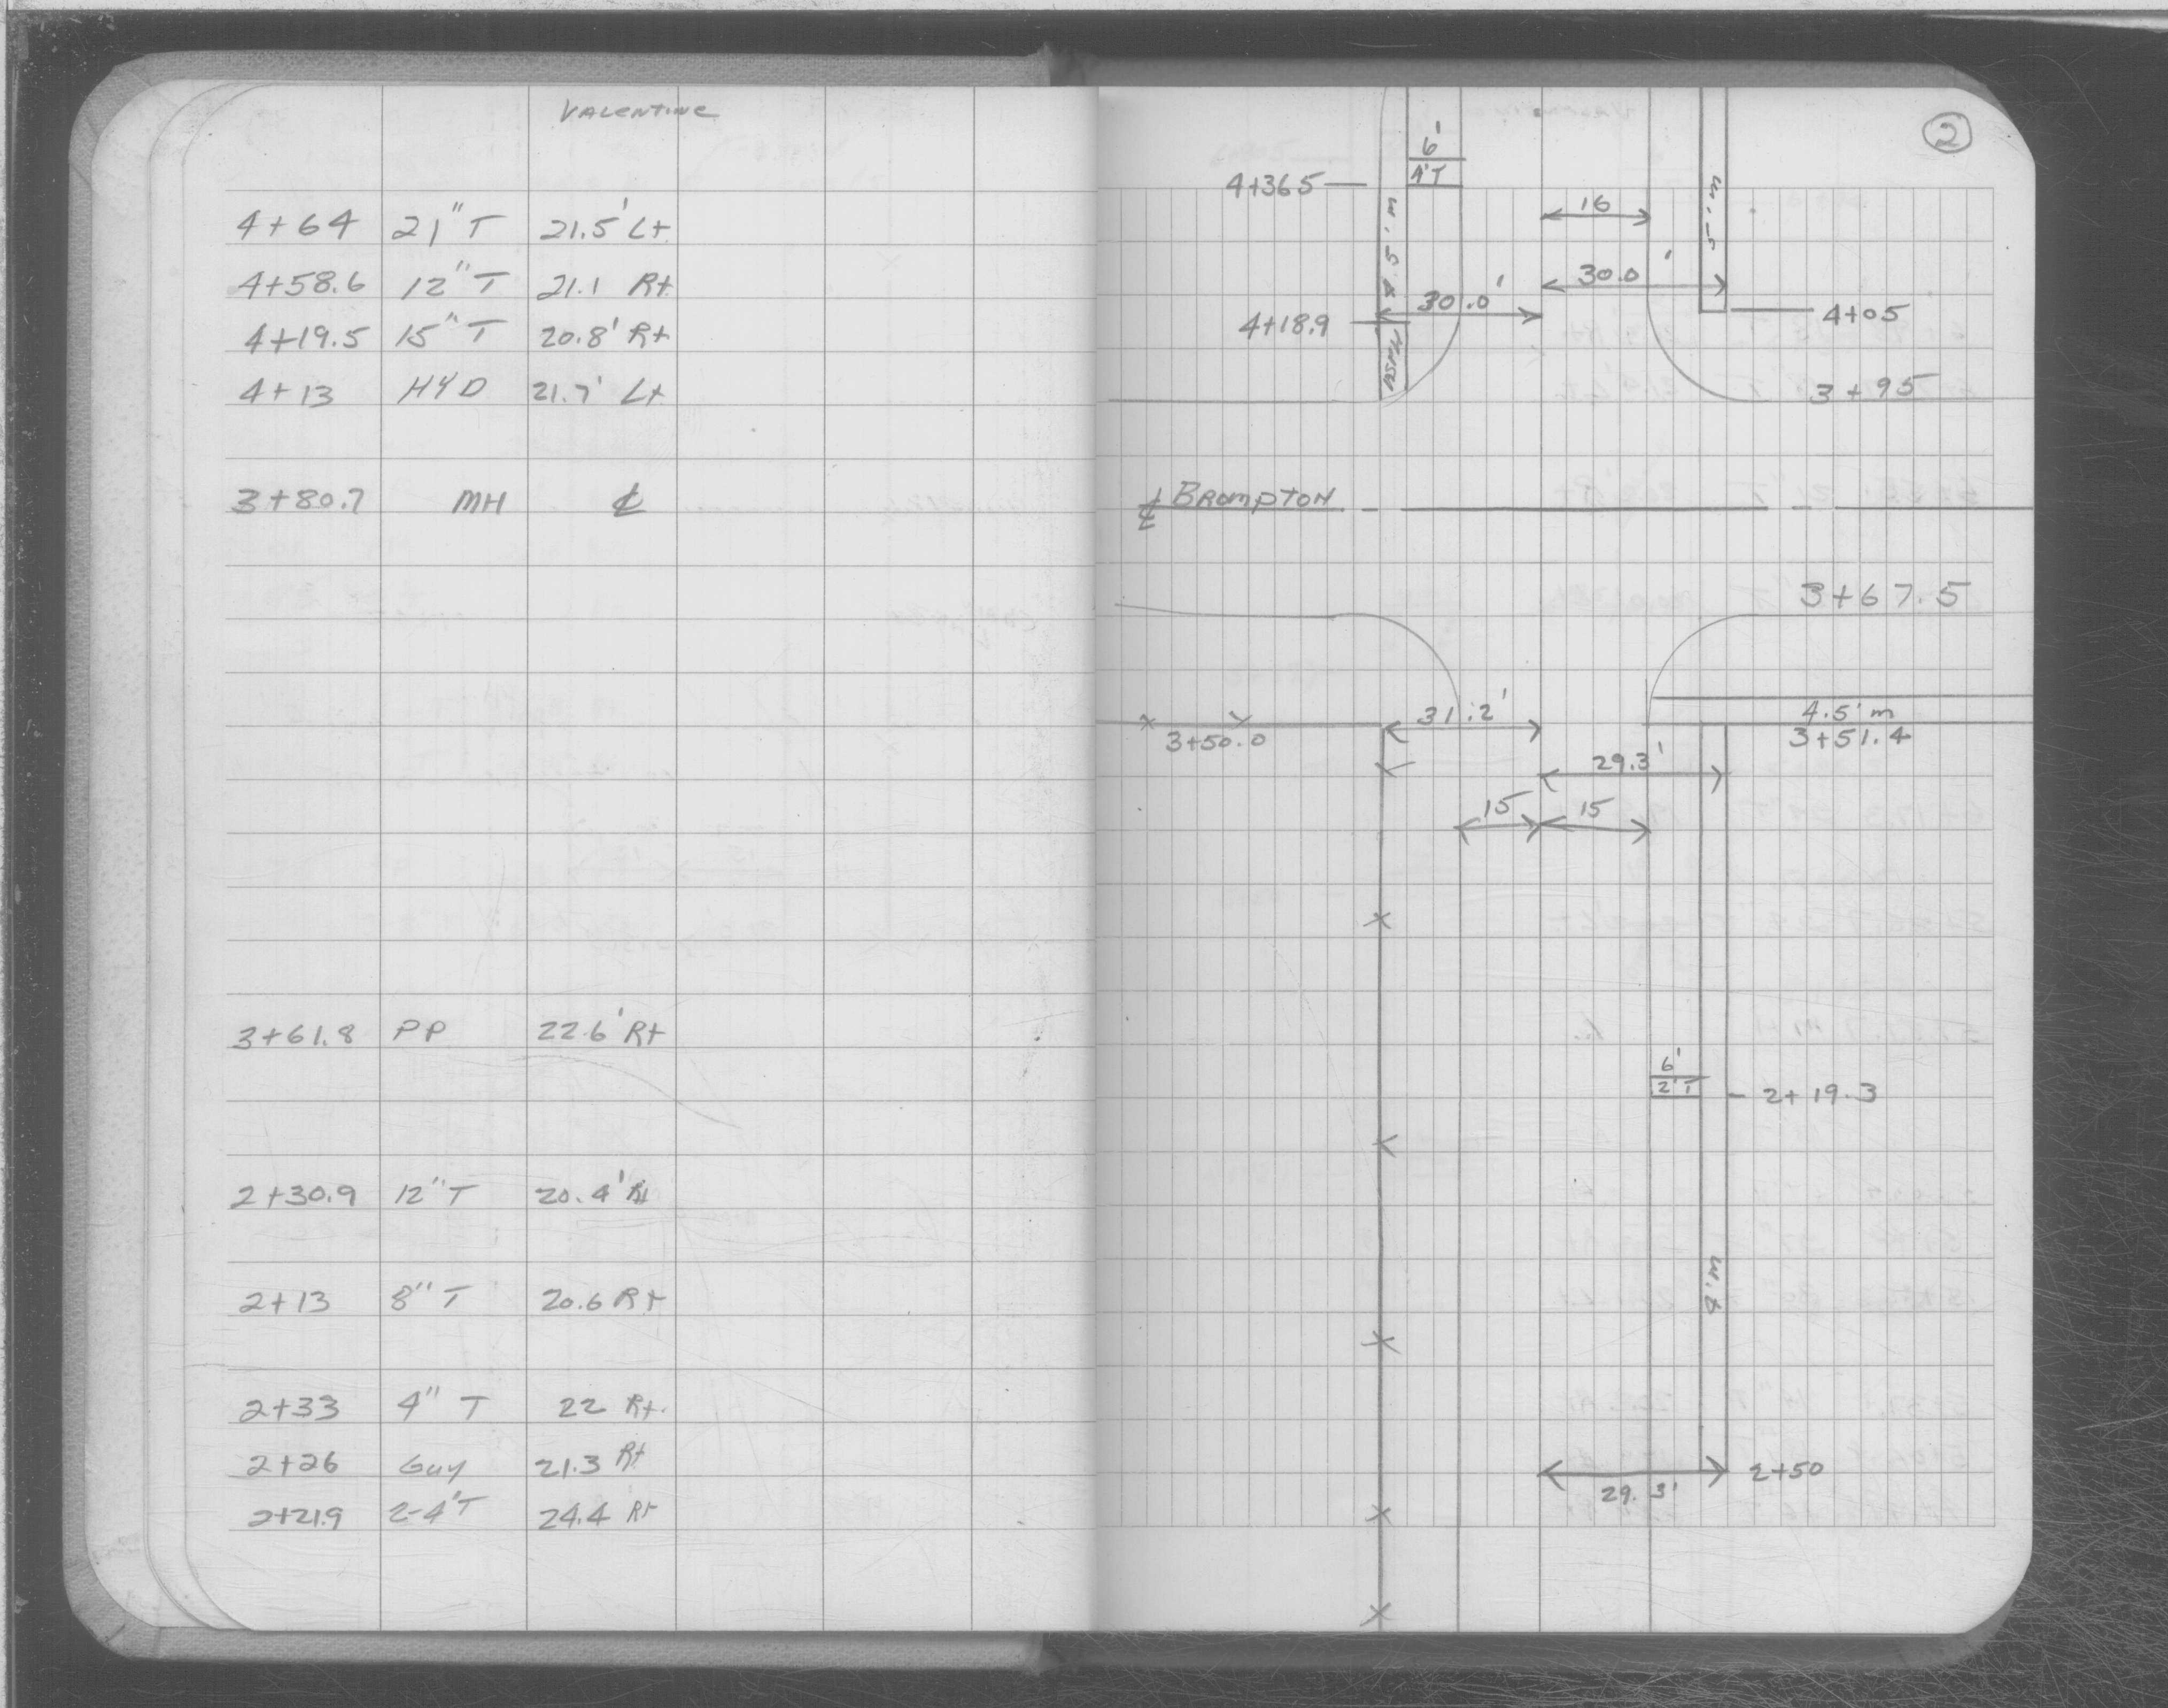 VALENTINE
4+64 21" T 21.5' Lt
4+58.6 12" T 21.1 Rt
4+19.5 15" T 20.8' Rt
4+13 HYD 21.7' Lt
3+80.7 MH ℄
3+61.8 PP 22.6' Rt
2+30.9 12" T 20.4' Rt
2+13 8" T 20.6 Rt
2+33 4" T 22 Rt.
2+26 Guy 21.3 Rt
2+21.9 2-4'T 24.4 Rt
2
6'
4'T
4+365
16
30.0'
30.0'
4+18.9
4+05
3+95
4.5' m
m.5
℄ Brompton
3+67.5
31.2'
4.5' m
3+50.0
3+51.4
29.3'
15
15
6'
2'T
2+19.3
4.m
2+50
29.3'